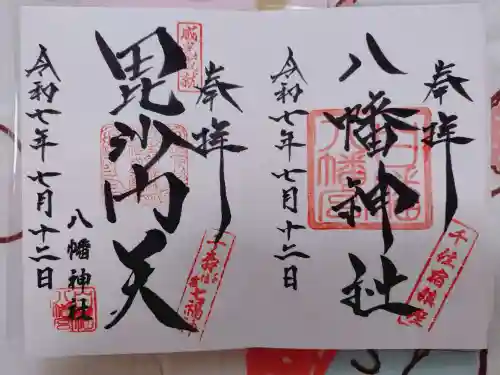 奉拝
八幡神社
令和七年七月十二日
千住宿鎮座
奉拝
毘沙門天
八幡神社
令和七年七月十二日